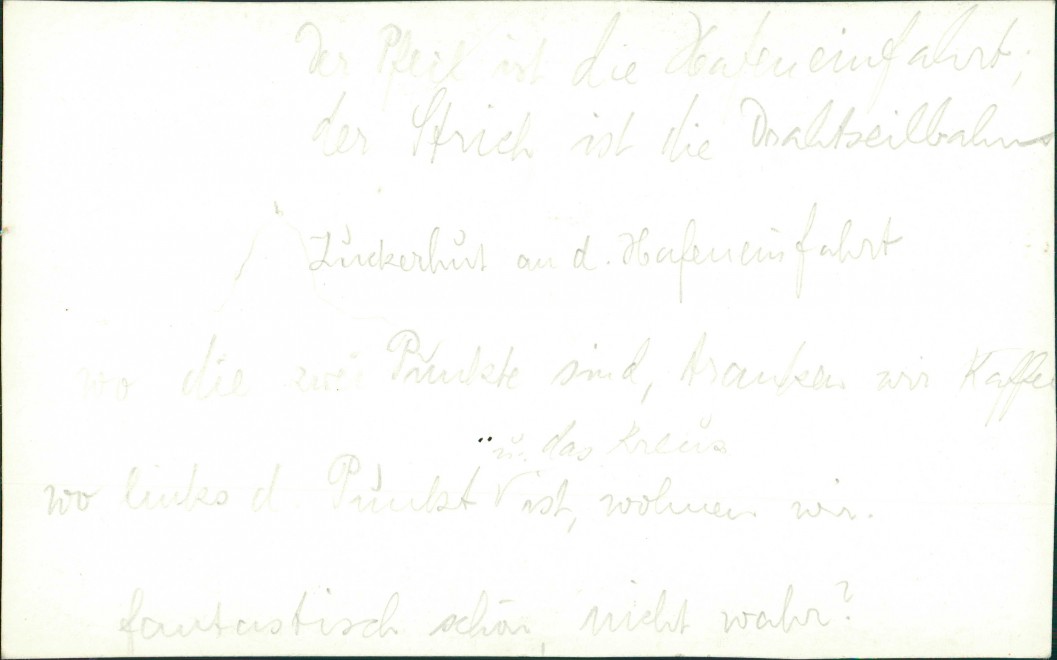 Der Pfeil ist die Hafeneinfahrt;
der Strich ist die Drahtseilbahn
Zuckerhut an d. Hafeneinfahrt
wo die zwei Punkte sind, tranken wir Kaffee
u. das Kreuz
wo links d Punkt ist, wohnen wir.
fantastisch schön, nicht wahr?